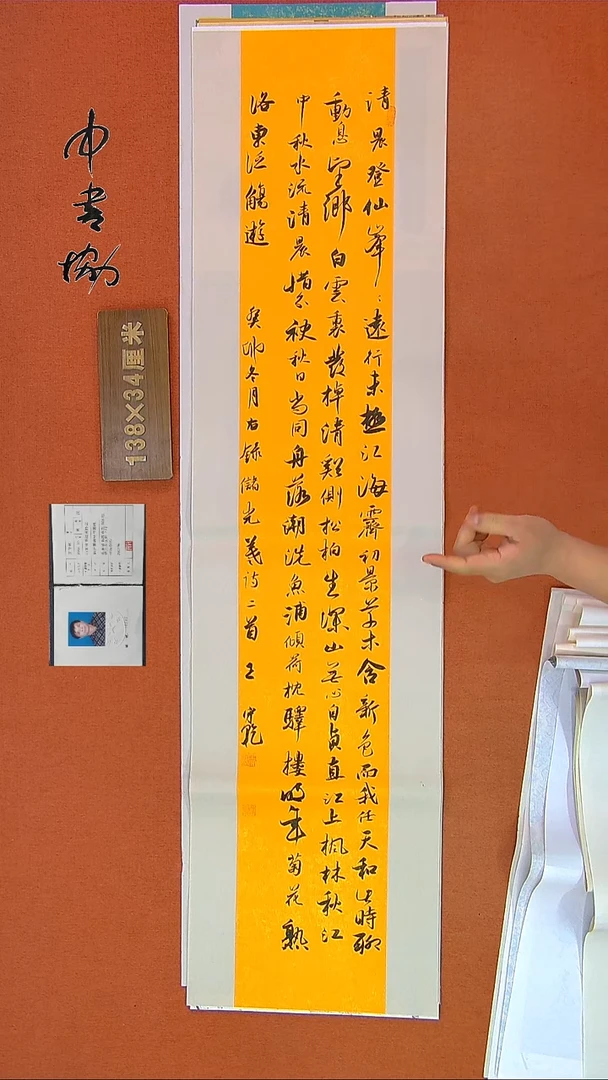 清晨登仙峯々遠行未極江海霽初景草木含新色而我任天和此時聊
動息望鄉白雲裏發棹清谿側松柏生深山無心自貞直江上楓林秋江
中秋水流清晨惜分袂秋日尚同舟落潮洗魚浦傾荷枕驛樓明年菊花熟
洛東泛觴遊 癸卯冬月右錄儲光羲詩二首 王
中书协
138×34厘米